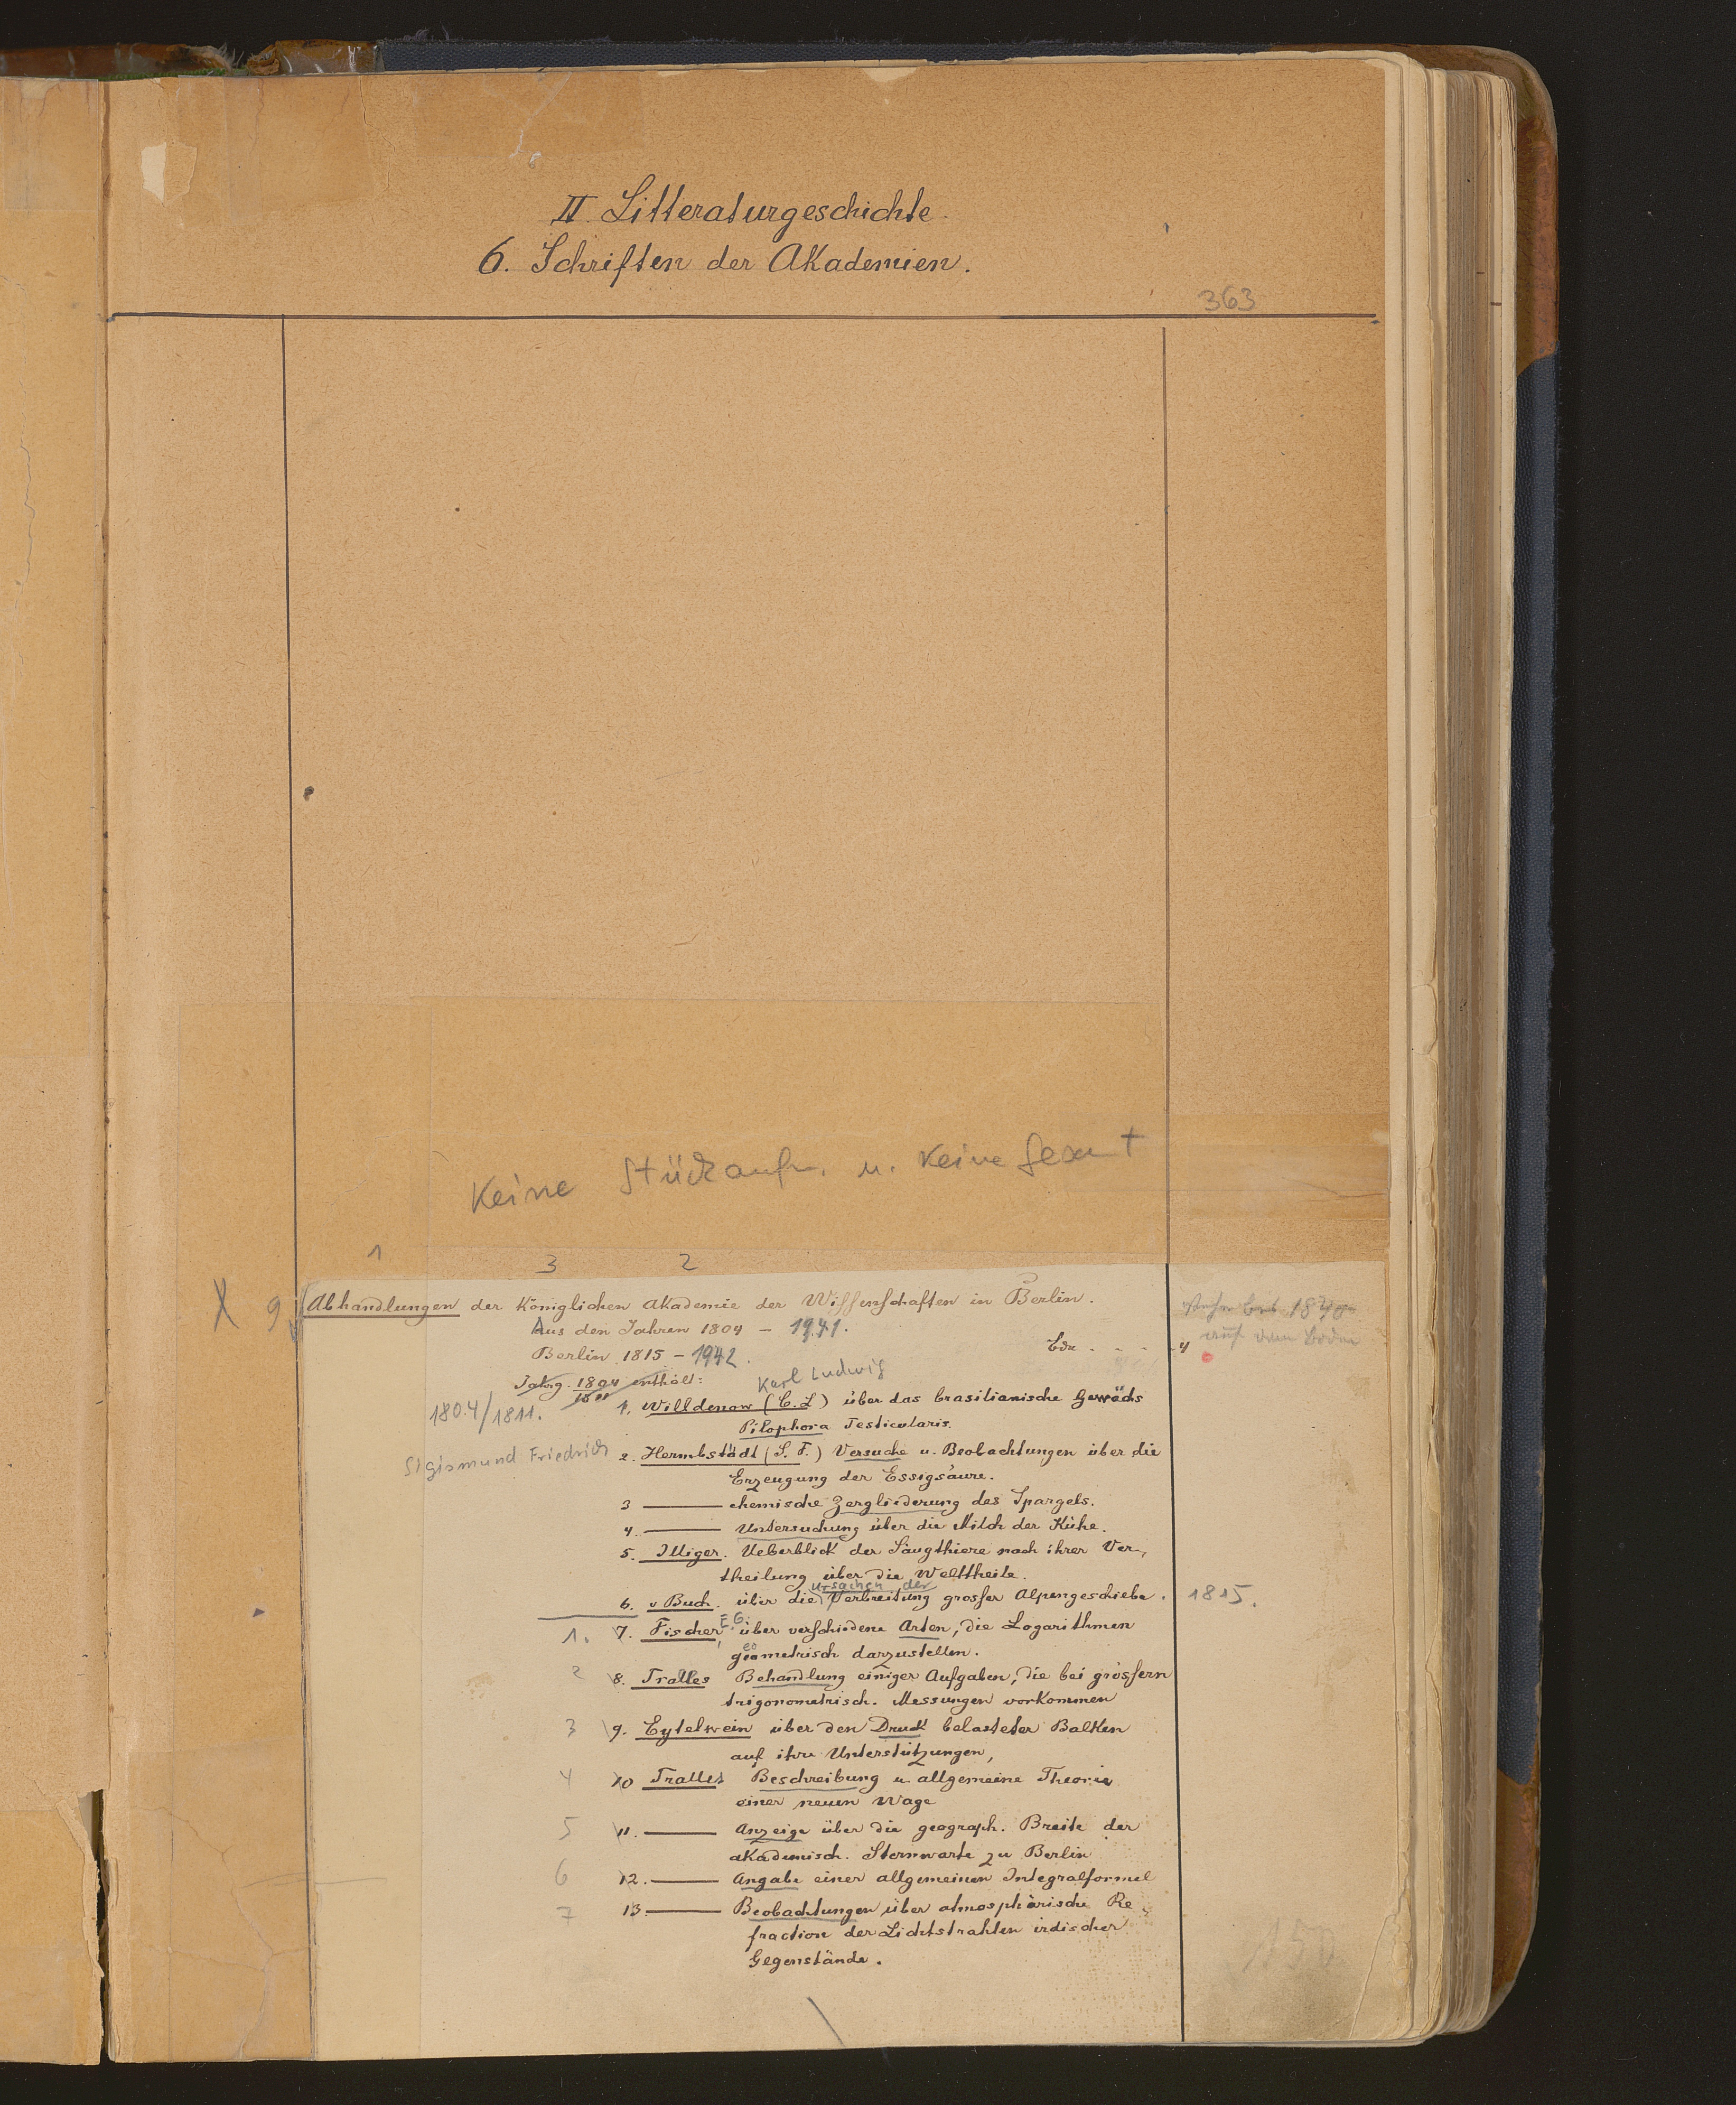 II. Litteraturgeschichte.
6. Schriften der Akademien.
363
Keine Stückaufn. u. Keine Gesamt
1 3 2
X 9 Abhandlungen der Königlichen Akademie der Wissenschaften in Berlin.
Aus den Jahren 1804 – 1941.
Berlin 1815 – 1942.
Bde . . . 4
1840
auf dem Boden
Jahrg. 1804 enthält:
1811
1804/1811.
Karl Ludwig
1. Willdenow (C. L) über das brasilianische Gewächs
Pilophora Testicularis.
Sigismund Friedrich
2. Hermbstädt (S. F.) Versuche u. Beobachtungen über die
Erzeugung der Essigsäure.
3 —— chemische Zergliederung des Spargels.
4. —— Untersuchung über die Milch der Kühe.
5. Illiger. Ueberblick der Säugthiere nach ihrer Ver-
theilung über die Welttheile.
Ursachen der
6. v Buch. über die Verbreitung grosser Alpengeschiebe. 1815.
1. 7. Fischer, E.G. über verschiedene Arten, die Logarithmen
geometrisch darzustellen.
2 8. Tralles Behandlung einiger Aufgaben, die bei grössern
trigonometrisch. Messungen vorkommen
3 9. Eytelwein über den Druck belasteter Balken
auf ihre Unterstützungen,
4 10 Tralles Beschreibung u. allgemeine Theorie
einer neuen Wage
5 11. —— Anzeige über die geograph. Breite der
akademisch. Sternwarte zu Berlin
6 12. —— Angabe einer allgemeinen Integralformel
7 13. —— Beobachtungen über atmosphärische Re-
fraction der Lichtstrahlen irdischer
Gegenstände.
150